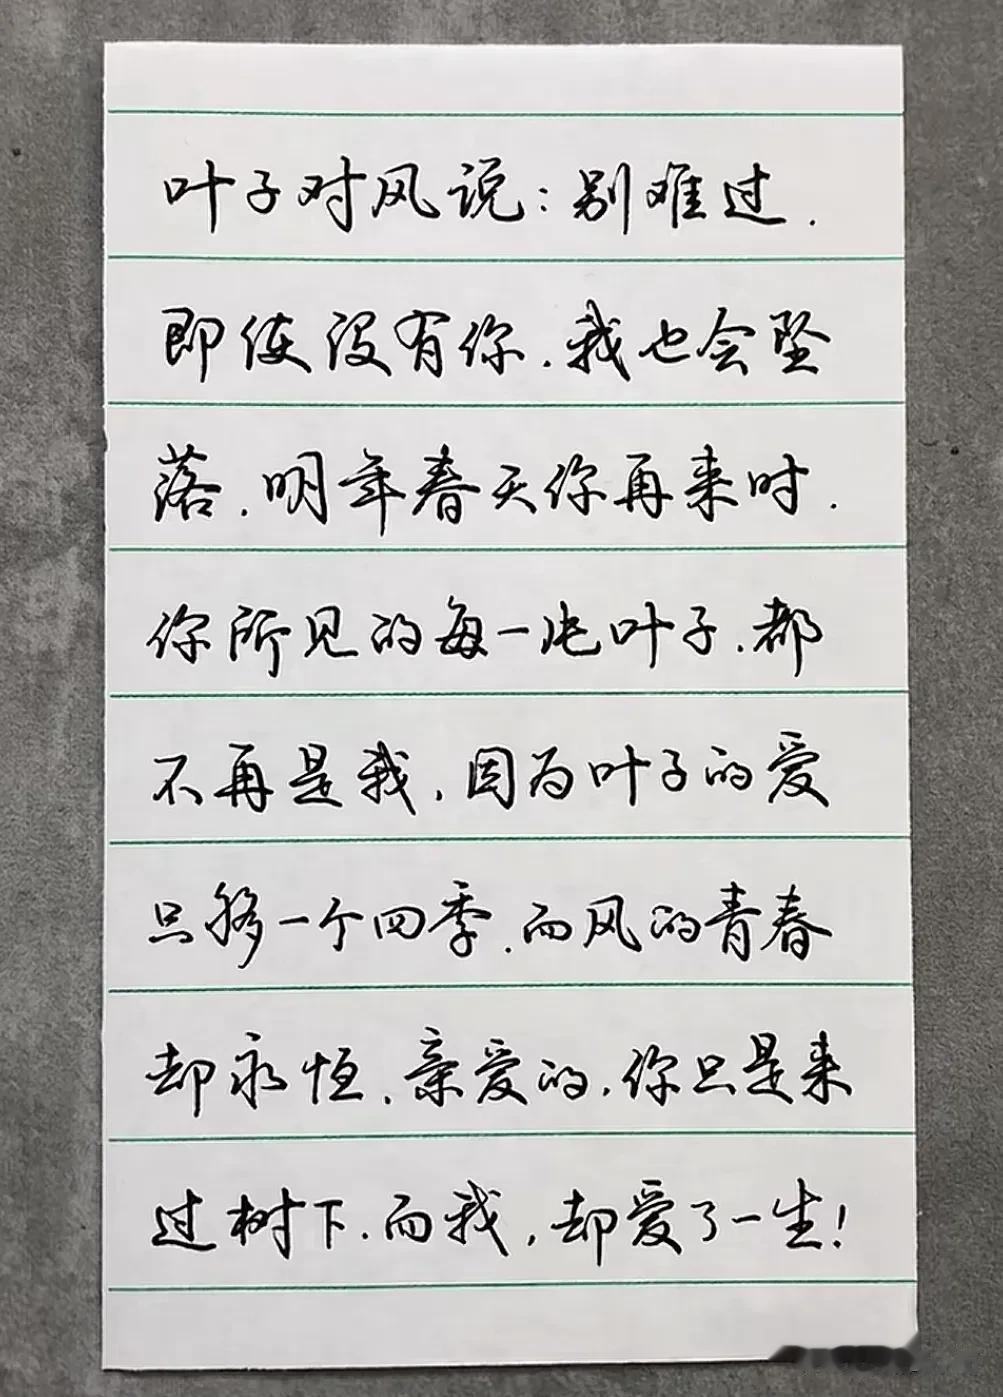 叶子对风说：别难过.
即使没有你.我也会坠
落.明年春天你再来时.
你所见的每一片叶子.都
不再是我,因为叶子的爱
只够一个四季.而风的青春
却永恒.亲爱的,你只是来
过树下.而我,却爱了一生!